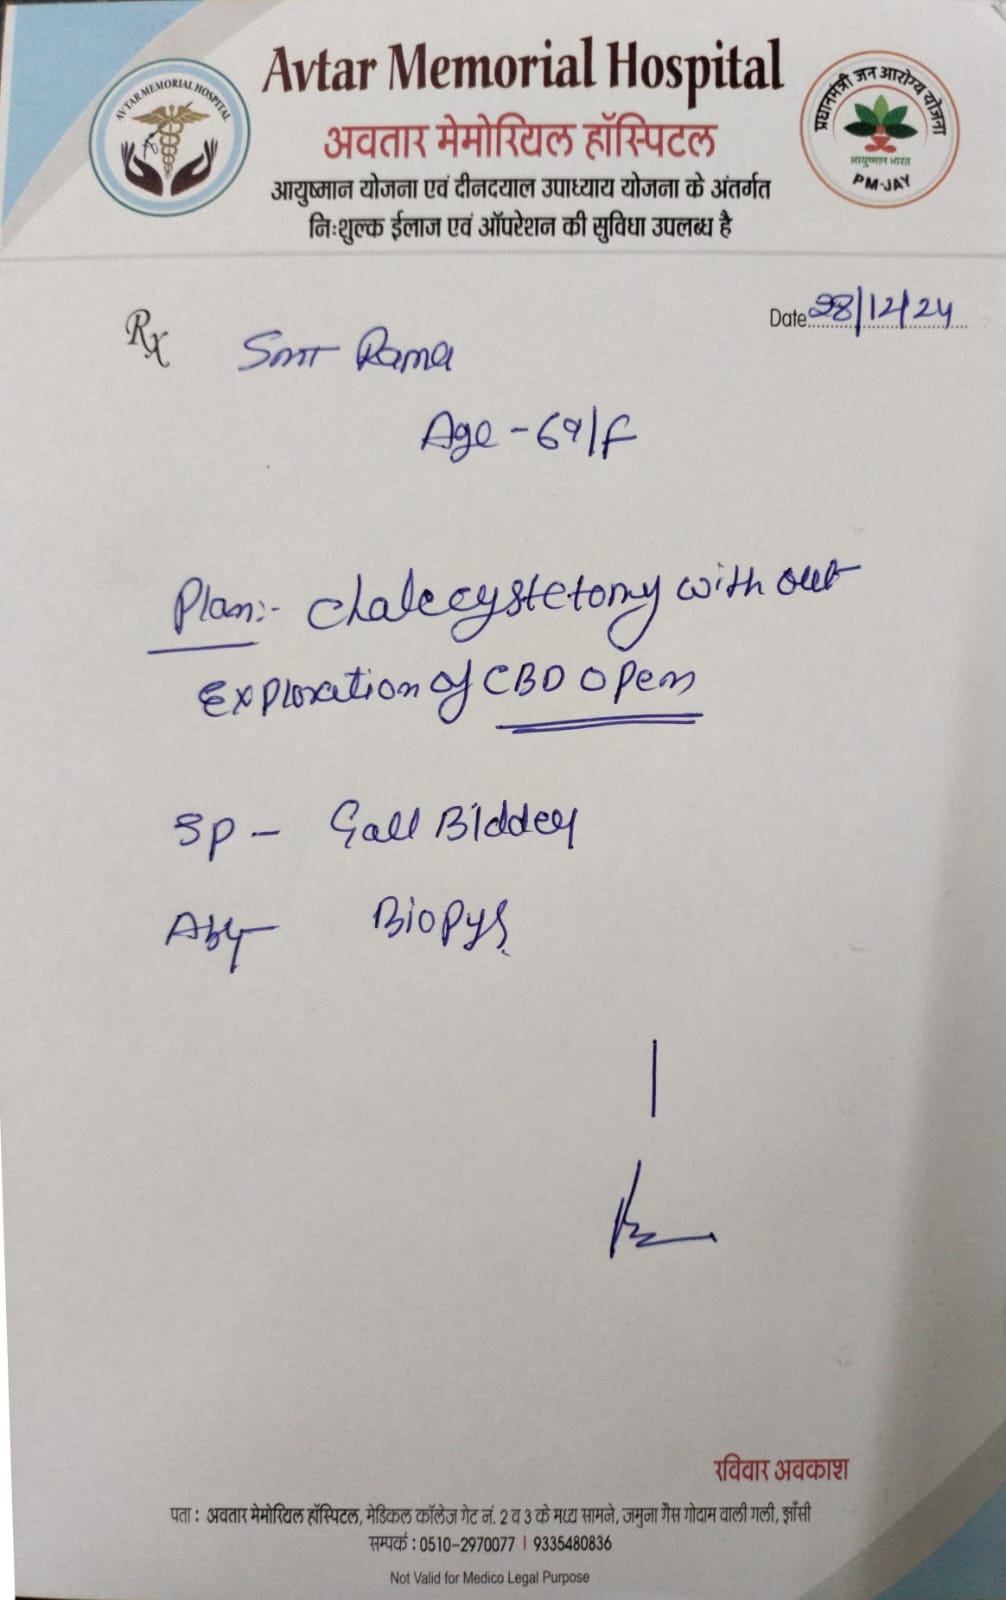 Avtar Memorial Hospital
AVTAR MEMORIAL HOSPITAL
प्रधानमंत्री जन आरोग्य योजना
आयुष्मान भारत
PM-JAY
अवतार मेमोरियल हॉस्पिटल
आयुष्मान योजना एवं दीनदयाल उपाध्याय योजना के अंतर्गत
निःशुल्क ईलाज एवं ऑपरेशन की सुविधा उपलब्ध है
Date 28/12/24
Rx Smt Rama
Age - 69/F
Plan:- Chalecystetomy with out
Exploration of CBD Open
Sp - Gall Bladder
Biopys
रविवार अवकाश
पता : अवतार मेमोरियल हॉस्पिटल, मेडिकल कॉलेज गेट नं. 2 व 3 के मध्य सामने, जमुना गैस गोदाम वाली गली, झाँसी
सम्पर्क : 0510-2970077 | 9335480836
Not Valid for Medico Legal Purpose